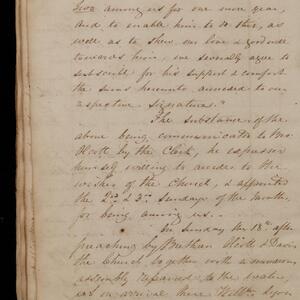 among us for one more year,
and to enable him to do this, as
well as to shew our love & good will
towards him, we severally agree to
subscribe for his support & comfort
the sums hereunto annexed to our
respective signatures."
The substance of the
above being communicated to Bro
Hiott by the Clerk, he expressed
himself willing to accede to the
wishes of the Church, & appointed
the 2nd & 3rd Sundays of the month
for being among us.
On Sunday the 18th after
preaching by Brethren Hiott & Davis
the Church together with a numerous
assembly repaired to the water,
and on arrival there